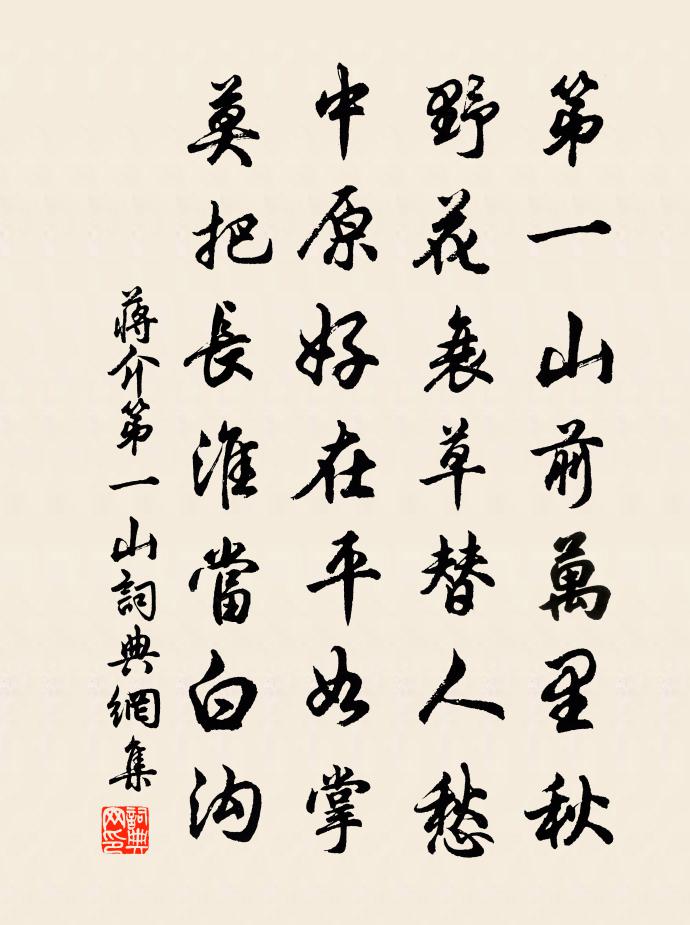 第一山前萬里秋
野花衰草替人愁
中原好在平如掌
莫把長淮當白沟
蔣介第一山詞典網集
詞典网印